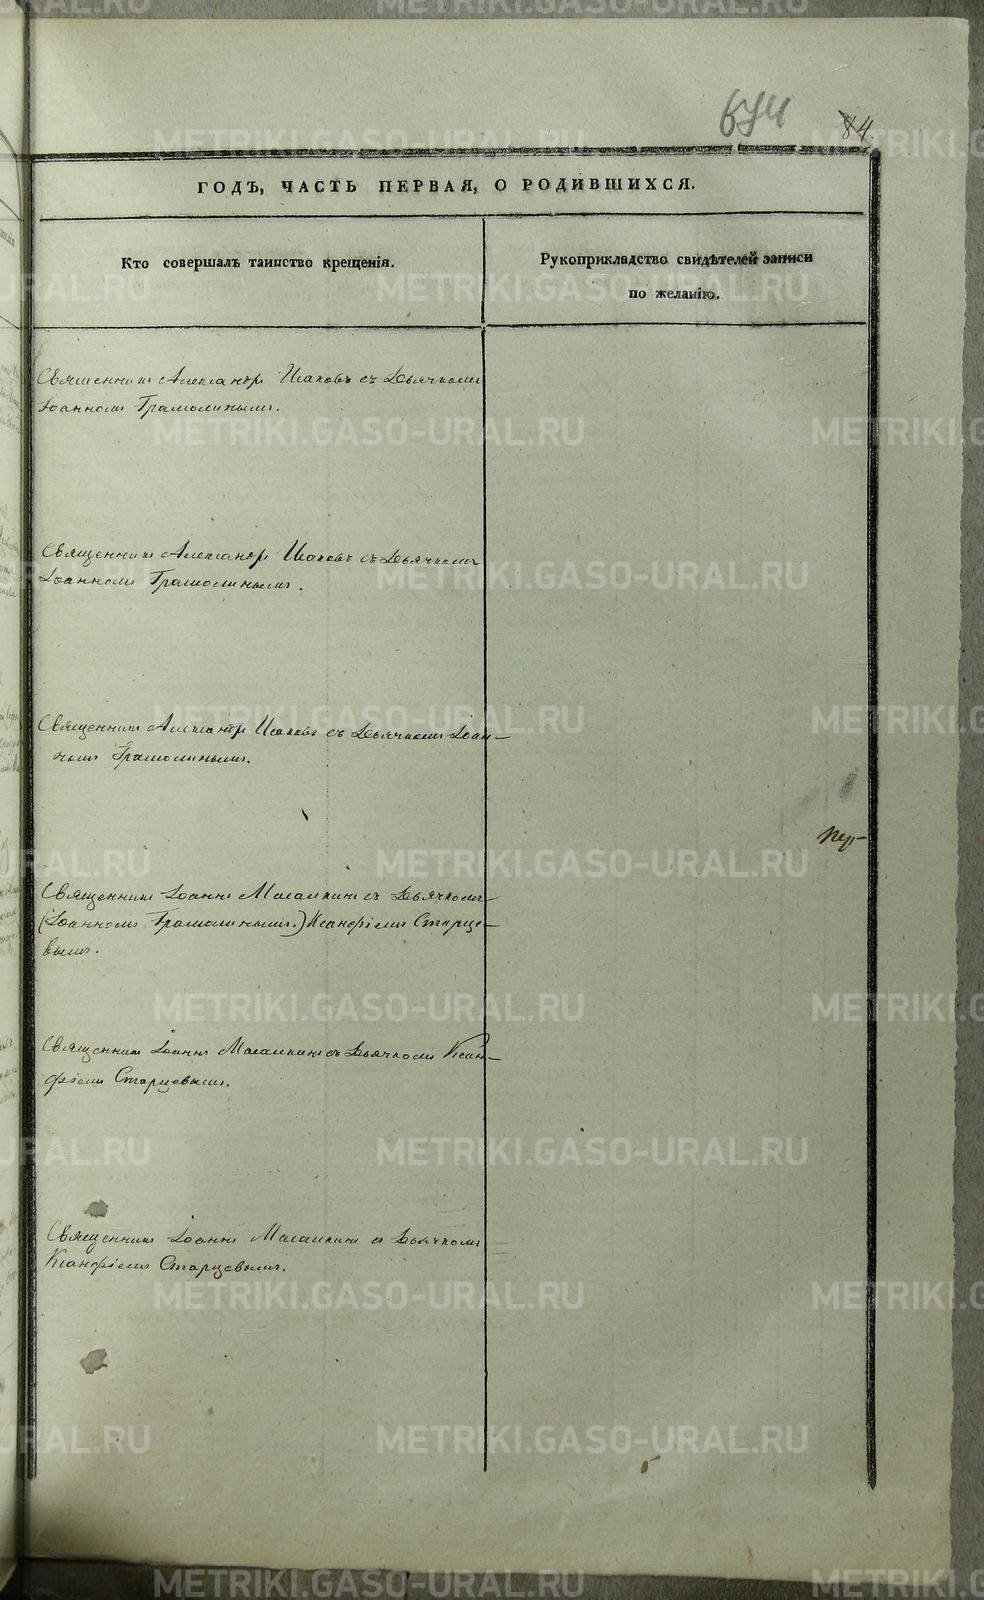 684
84
ГОДЪ, ЧАСТЬ ПЕРВАЯ, О РОДИВШИХСЯ.
Кто совершалъ таинство крещенія.
Рукоприкладство свидѣтелей записи
по желанію.
Священникъ Александръ Исаковъ съ Дьячкомъ
Іоанномъ Грамолинымъ.
Священникъ Александръ Исаковъ съ Дьячкомъ
Іоанномъ Грамолинымъ.
Священникъ Александръ Исаковъ съ Дьячкомъ Іоан-
номъ Грамолинымъ.
Священникъ Іоаннъ Масалкинъ съ Дьячкомъ
(Іоанномъ Грамолинымъ.) Ксанфіемъ Старце-
вымъ.
Священникъ Іоаннъ Масалкинъ съ Дьячкомъ Ксан-
фіемъ Старцевымъ.
Священникъ Іоаннъ Масалкинъ съ Дьячкомъ
Ксанфіемъ Старцевымъ.
METRIKI.GASO-URAL.RU